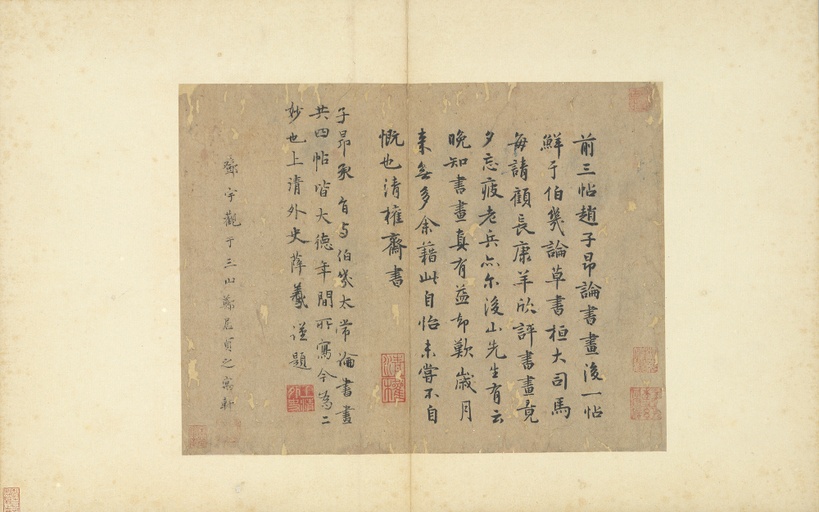 前三帖趙子昂論書畫後一帖
鮮于伯幾論草書桓大司馬
每請顧長康羊欣評書畫竟
夕忘疲老兵亦尔後山先生有云
晚知書畫真有益却歎歲月
来無多余藉此自怡未嘗不自
慨也清權齋書
子昂承旨与伯幾太常論書畫
共四帖皆大德年間所寫今為二
妙也上清外史薛羲謹題
鄧宇觀于三山
清權